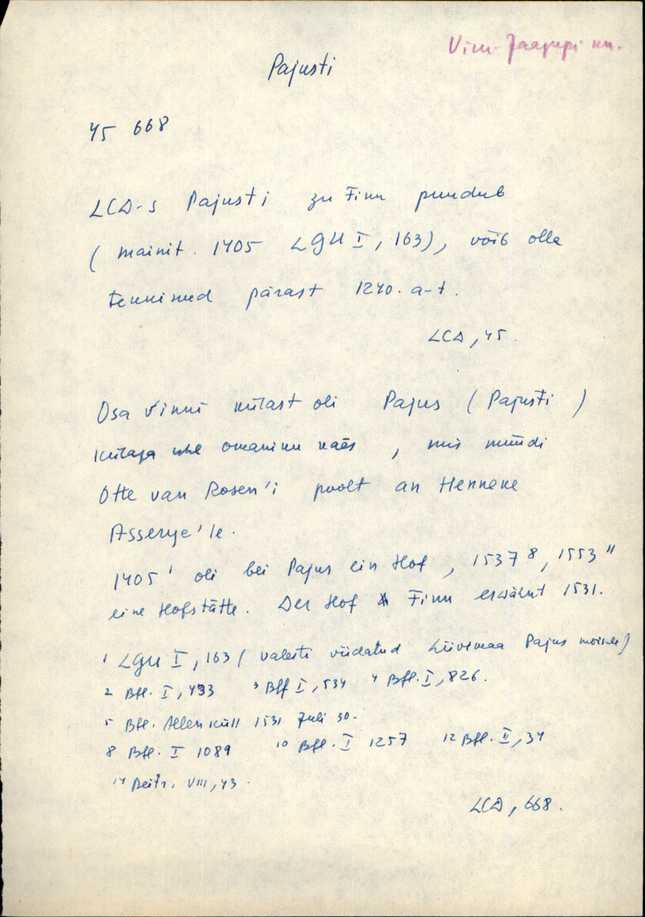 Viru-Jaagupi kn.
Pajusti
45 668
LCD-s Pajusti zu Finn puudub
(mainit. 1405 LGU I, 163), võib olla
tekkinud pärast 1240. a-t.
LCD, 45.
Osa Vinni külast oli Pajus (Pajusti)
külaga ühe omaniku käes, mis müüdi
Otte van Rosen'i poolt an Henneke
Asserye'le.
1405¹ oli bei Pajus ein Hof, 1537⁸, 1553¹¹
eine Hofstätte. Der Hof Finn erwähnt 1531.
1 LGU I, 163 (valesti viidatud Liivimaa Pajus mõisale)
2 Bfl. I, 493 3 Bfl I, 534 4 Bfl. I, 826.
5 Bfl. Allenküll 1531 Juli 30.
8 Bfl. I 1089 10 Bfl. I 1257 12 Bfl. II, 34
14 Beitr. VIII, 43.
LCD, 668.